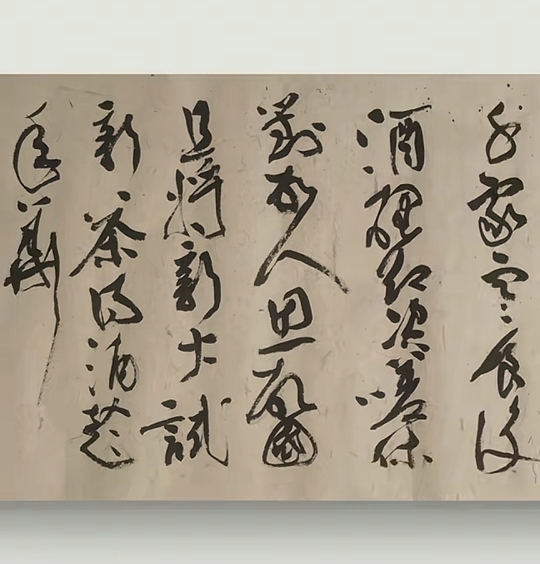 千家寒食後
酒醒卻咨嗟休
對故人思故國
且將新火試
新茶詩酒趁
年華